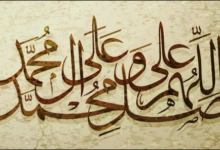 اللهم صل على محمد و على آل محمد